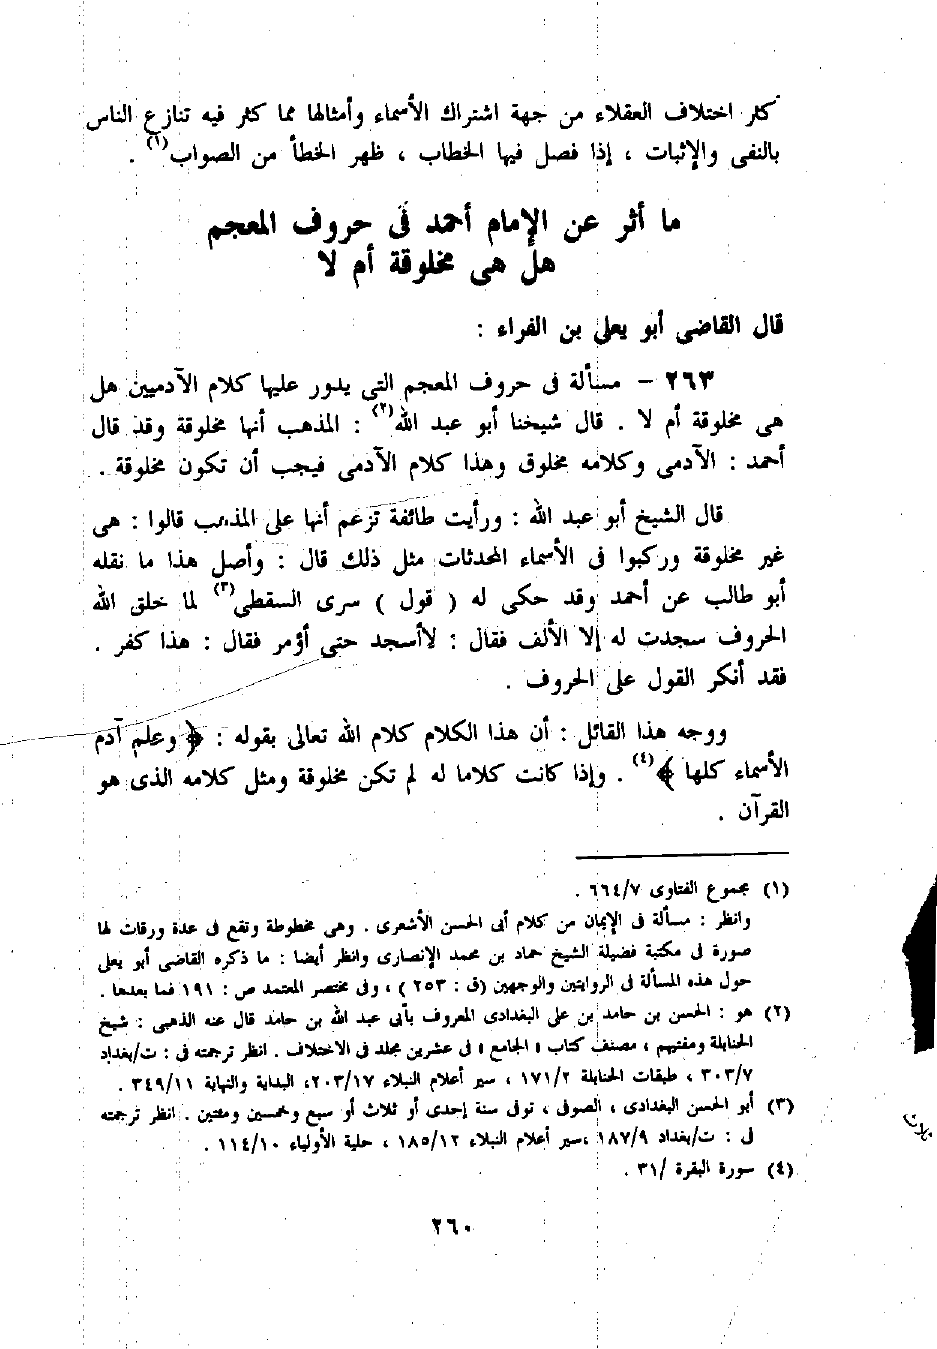 كثر اختلاف العقلاء من جهة اشتراك الأسماء وأمثالها مما كثر فيه تنازع الناس
بالنفى والإثبات ، إذا فصل فيها الخطاب ، ظهر الخطأ من الصواب(١) .
ما أثر عن الإمام أحمد فى حروف المعجم
هل هى مخلوقة أم لا
قال القاضى أبو يعلى بن الفراء :
٢٦٣ – مسألة فى حروف المعجم التى يدور عليها كلام الآدميين هل
هى مخلوقة أم لا . قال شيخنا أبو عبد الله(٢) : المذهب أنها مخلوقة وقد قال
أحمد : الآدمى وكلامه مخلوق وهذا كلام الآدمى فيجب أن تكون مخلوقة .
قال الشيخ أبو عبد الله : ورأيت طائفة تزعم أنها على المذهب قالوا : هى
غير مخلوقة وركبوا فى الأسماء المحدثات مثل ذلك قال : وأصل هذا ما نقله
أبو طالب عن أحمد وقد حكى له ( قول ) سرى السقطى(٣) لما خلق الله
الحروف سجدت له إلا الألف فقال : لاأسجد حتى أؤمر فقال : هذا كفر .
فقد أنكر القول على الحروف .
ووجه هذا القائل : أن هذا الكلام كلام الله تعالى بقوله : ﴿ وعلم آدم
الأسماء كلها ﴾(٤) . وإذا كانت كلاما له لم تكن مخلوقة ومثل كلامه الذى هو
القرآن .
(١) مجموع الفتاوى ٦٦٤/٧ .
وانظر : مسألة فى الإيمان من كلام أبى الحسن الأشعرى . وهى مخطوطة وتقع فى عدة ورقات لها
صورة فى مكتبة فضيلة الشيخ حماد بن محمد الإنصارى وانظر أيضا : ما ذكره القاضى أبو يعلى
حول هذه المسألة فى الروايتين والوجهين (ق : ٢٥٣ ) ، وفى مختصر المعتمد ص : ١٩١ فما بعدها .
(٢) هو : الحسن بن حامد بن على البغدادى المعروف بأبى عبد الله بن حامد قال عنه الذهبى : شيخ
الحنابلة ومفتيهم ، مصنف كتاب « الجامع » فى عشرين مجلد فى الاختلاف . انظر ترجمته فى : ت/بغداد
٣٠٣/٧ ، طبقات الحنابلة ١٧١/٢ ، سير أعلام النبلاء ٢٠٣/١٧، البداية والنهاية ٣٤٩/١١ .
(٣) أبو الحسن البغدادى ، الصوفى ، توفى سنة إحدى أو ثلاث أو سبع وخمسين ومئتين . انظر ترجمته
فى : ت/بغداد ١٨٧/٩ ،سير أعلام النبلاء ١٨٥/١٢ ، حلية الأولياء ١١٤/١٠ .
(٤) سورة البقرة /٣١ .
٢٦٠